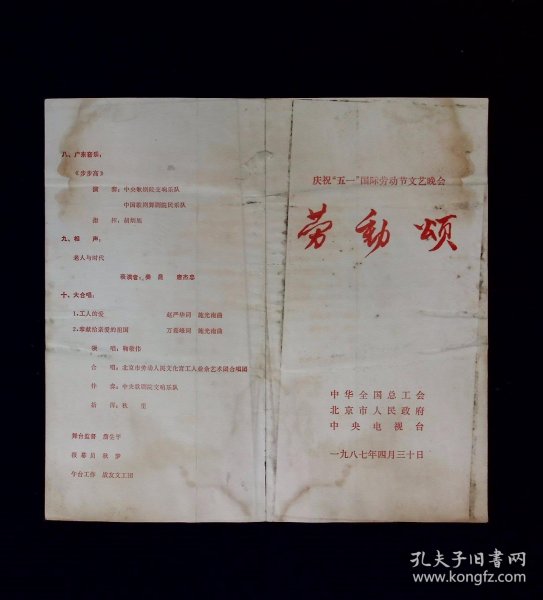 八、广东音乐：
《步步高》
演 奏：中央歌剧院交响乐队
中国歌剧舞剧院民乐队
指 挥：胡炳旭
九、相 声：
老人与时代
表演者：姜 昆 唐杰忠
十、大合唱：
1.工人的爱 赵严华词 施光南曲
2.奉献给亲爱的祖国 万峰雄词 施光南曲
领 唱：鞠敬伟
合 唱：北京市劳动人民文化宫工人业余艺术团合唱团
伴 奏：中央歌剧院交响乐队
指 挥：秋 里
舞台监督
报幕员
午台工作 战友文工团
庆祝“五一”国际劳动节文艺晚会
劳動颂
中华全国总工会
北京市人民政府
中央电视台
一九八七年四月三十日
孔夫子旧书网
www.kongfz.com